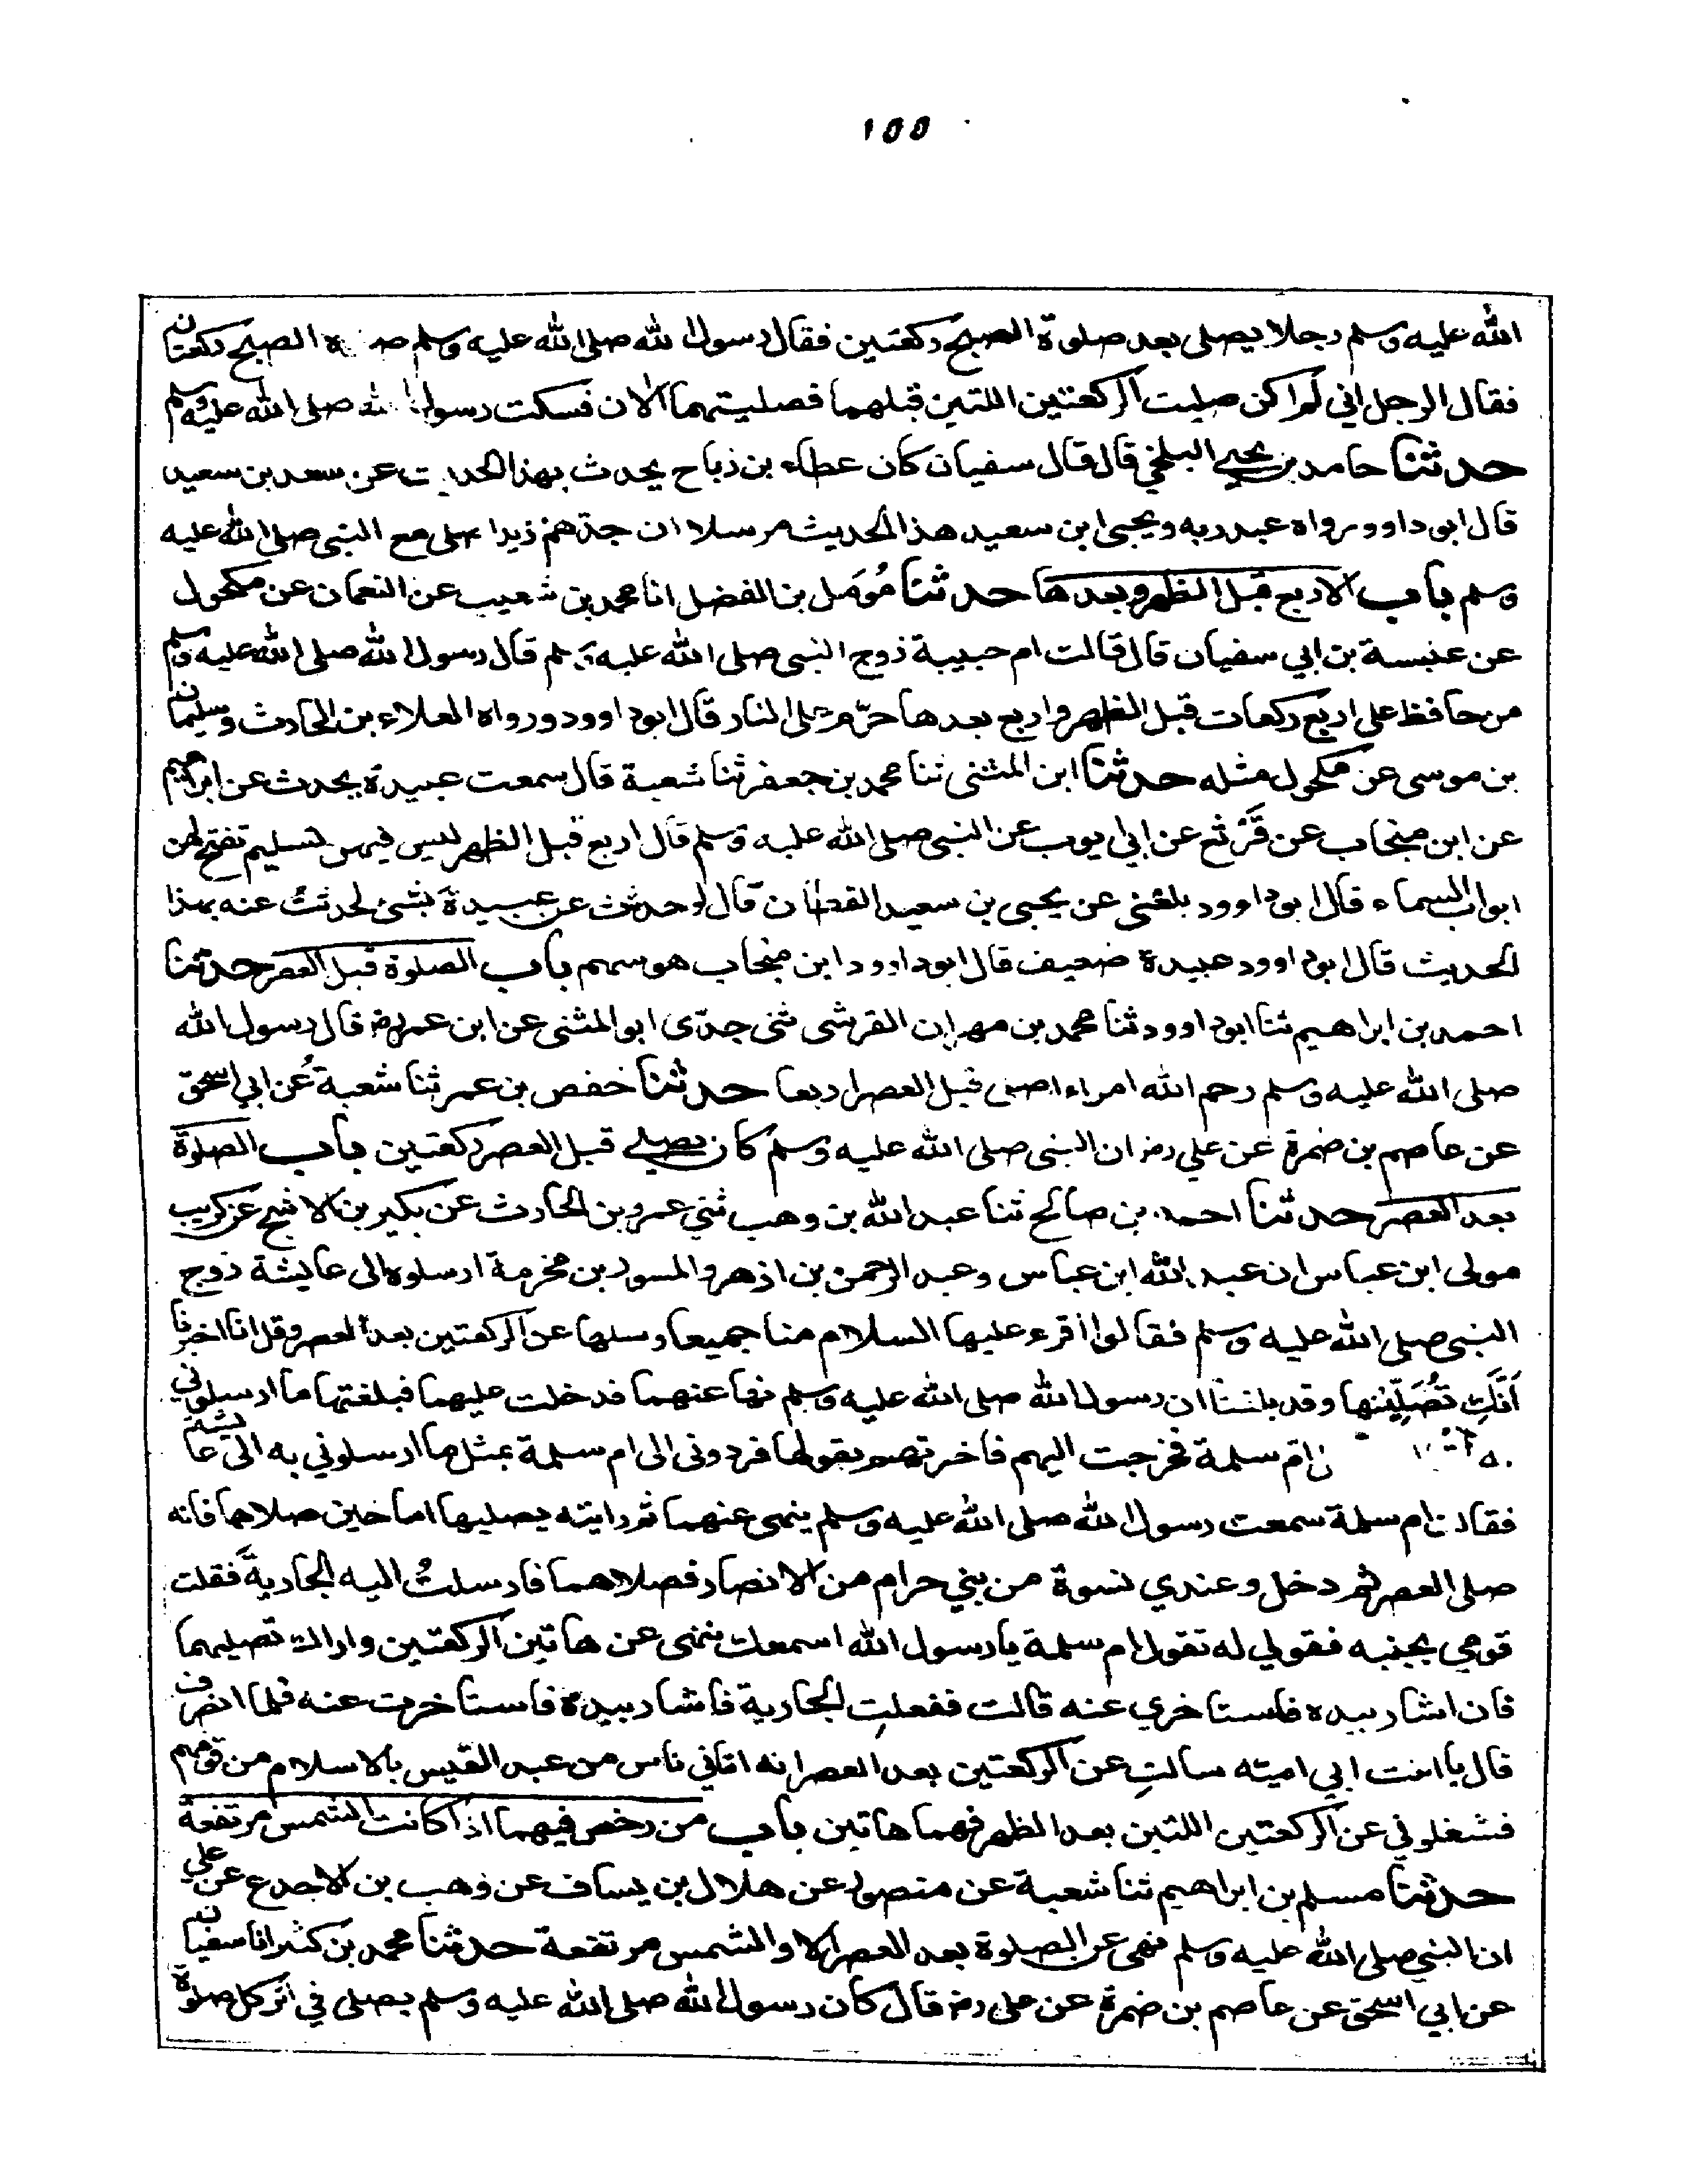 ١٥٥
الله عليه وسلم رجلا يصلى بعد صلوة الصبح ركعتين فقال رسول الله صلى الله عليه وسلم الصبح ركعتان
فقال الرجل اني لم اكن صليت الركعتين اللتين قبلهما فصليتهما الان فسكت رسول الله صلى الله عليه وسلم
حدثنا حامد بن يحيى البلخي قال قال سفيان كان عطاء بن رباح يحدث بهذا الحديث عن سعد بن سعيد
قال ابو داوود رواه عبد ربه ويحيى ابن سعيد هذا الحديث مرسلا ان جدهم زيدا صلى مع النبى صلى الله عليه
وسلم باب الاربع قبل الظهر وبعدها حدثنا مُومَل بن الفضل انا محمد بن شعيب عن النعمان عن مكحول
عن عنبسة بن ابي سفيان قال قالت ام حبيبة زوج النبى صلى الله عليه وسلم قال رسول الله صلى الله عليه وسلم
من حافظ على اربع ركعات قبل الظهر واربع بعدها حرّم على النار قال ابو داوود ورواه العلاء بن الحارث وسليمان
بن موسى عن مكحول مثله حدثنا ابن المثنى ثنا محمد بن جعفر ثنا شعبة قال سمعت عبيدة يحدث عن ابراهيم
عن ابن منجاب عن قَرْثع عن ابي ايوب عن النبى صلى الله عليه وسلم قال اربع قبل الظهر ليس فيهن تسليم تفتح لهن
ابواب السماء قال ابو داوود بلغنى عن يحيى بن سعيد القطان قال لو حدثت عن عبيدة بشئ لحدثتُ عنه بهذا
الحديث قال ابو داوود عبيدة ضعيف قال ابو داوود ابن منجاب هو سهم باب الصلوة قبل العصر حدثنا
احمد بن ابراهيم ثنا ابو داوود ثنا محمد بن مهران القرشى ثنى جدّى ابو المثنى عن ابن عمر رض قال رسول الله
صلى الله عليه وسلم رحم الله امراء صلى قبل العصر اربعا حدثنا حفص بن عمر ثنا شعبة عن ابي اسحق
عن عاصم بن ضمرة عن علي رض ان النبى صلى الله عليه وسلم كان يصلي قبل العصر ركعتين باب الصلوة
بعد العصر حدثنا احمد بن صالح ثنا عبد الله بن وهب ثني عمرو بن الحارث عن بكير بن الاشج عن كريب
مولى ابن عباس ان عبد الله ابن عباس وعبد الرحمن بن ازهر والمسور بن مخرمة ارسلوه الى عايشة زوج
النبى صلى الله عليه وسلم فقالوا اقرء عليها السلام منا جميعا وسلها عن الركعتين بعد العصر وقل انا اخبرنا
اَنّكِ تُصَلِّينها وقد بلغنا ان رسول الله صلى الله عليه وسلم نها عنهما فدخلت عليهما فبلغتها ما ارسلوني
امّ سلمة فخرجت اليهم فاخبرتهم بقولها فردونى الى ام سلمة بمثل ما ارسلوني به الى عايشة
فقالت ام سلمة سمعت رسول الله صلى الله عليه وسلم ينهى عنهما ثم رايته يصليها اما حين صلاهما فانه
صلى العصر ثم دخل وعندي نسوة من بني حرام من الانصار فصلاهما فارسلتُ اليه الجارية فقلت
قومي بجنبه فقولي له تقول ام سلمة يا رسول الله اسمعك تنهى عن هاتين الركعتين واراك تصليهما
فان اشار بيده فاستاخري عنه قالت ففعلتِ الجارية فاشار بيده فاستاخرت عنه فلما انصرف
قال يا ابنت ابي اميته سالتِ عن الركعتين بعد العصر انه اتاني ناس من عبد القيس بالاسلام من قومهم
فشغلوني عن الركعتين اللتين بعد الظهر فهما هاتين باب من رخص فيهما اذا كانت الشمس مرتفعة
حدثنا مسلم بن ابراهيم ثنا شعبة عن منصور عن هلال بن يساف عن وهب بن الاجدع عن علي
ان النبي صلى الله عليه وسلم نهى عن الصلوة بعد العصر الا والشمس مرتفعة حدثنا محمد بن كثير انا سفيان
عن ابي اسحق عن عاصم بن ضمرة عن على رض قال كان رسول الله صلى الله عليه وسلم يصلى في اثر كل صلوة